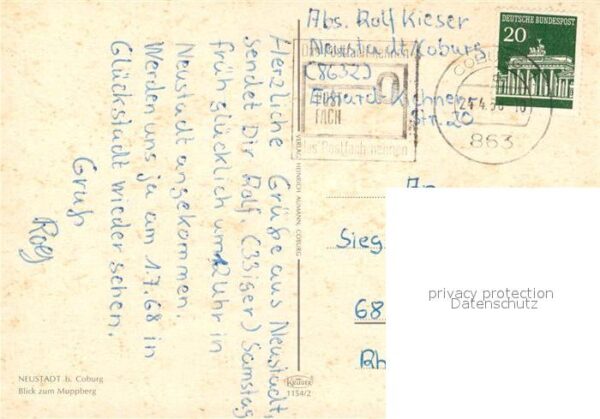 Herzliche Grüße aus Neustadt,
sendet Dir Rolf (33iger) Samstag
früh glücklich um 2 Uhr in
Neustadt angekommen.
Werden uns ja am 1.7.68 in
Glückstadt wieder sehen.
Gruß
Rolf
Abs. Rolf Kieser
Neustadt/Coburg
(8632)
Str. 20
POST
FACH
das Postfach nennen
863
DEUTSCHE BUNDESPOST
20
An
Sieg
68
Rh
privacy protection
Datenschutz
VERLAG HEINRICH AUMANN, COBURG
NEUSTADT b. Coburg
Blick zum Muppberg
Krüger
1154/2